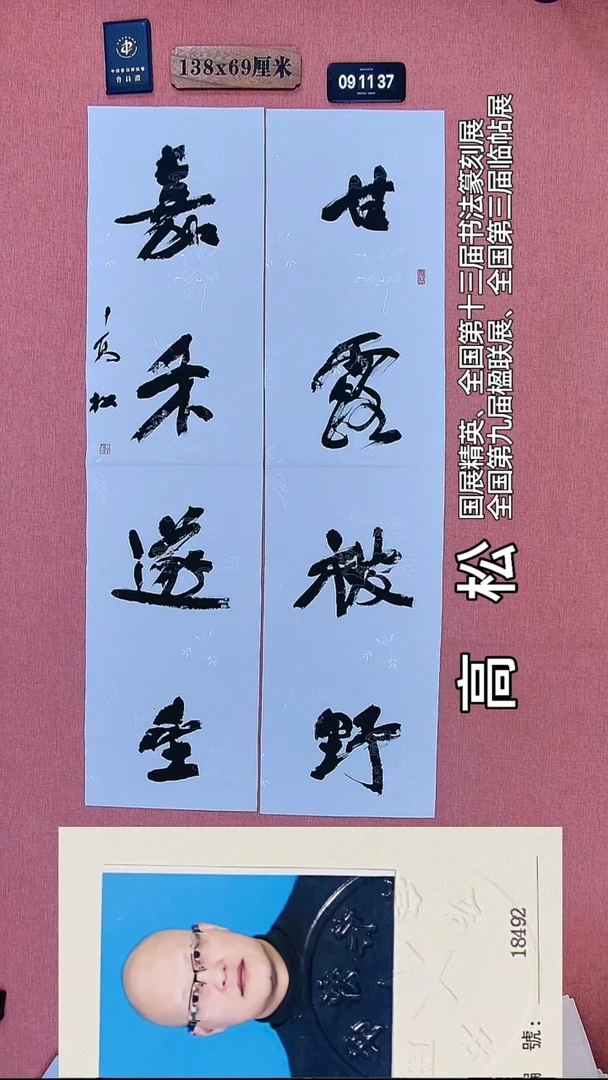 中国书法家协会
會員證
138x69厘米
09 11 37
甘露被野
嘉禾遂垂
高松
国展精英、全国第十三届书法篆刻展
全国第九届楹联展、全国第三届临帖展
高 松
18492
號：